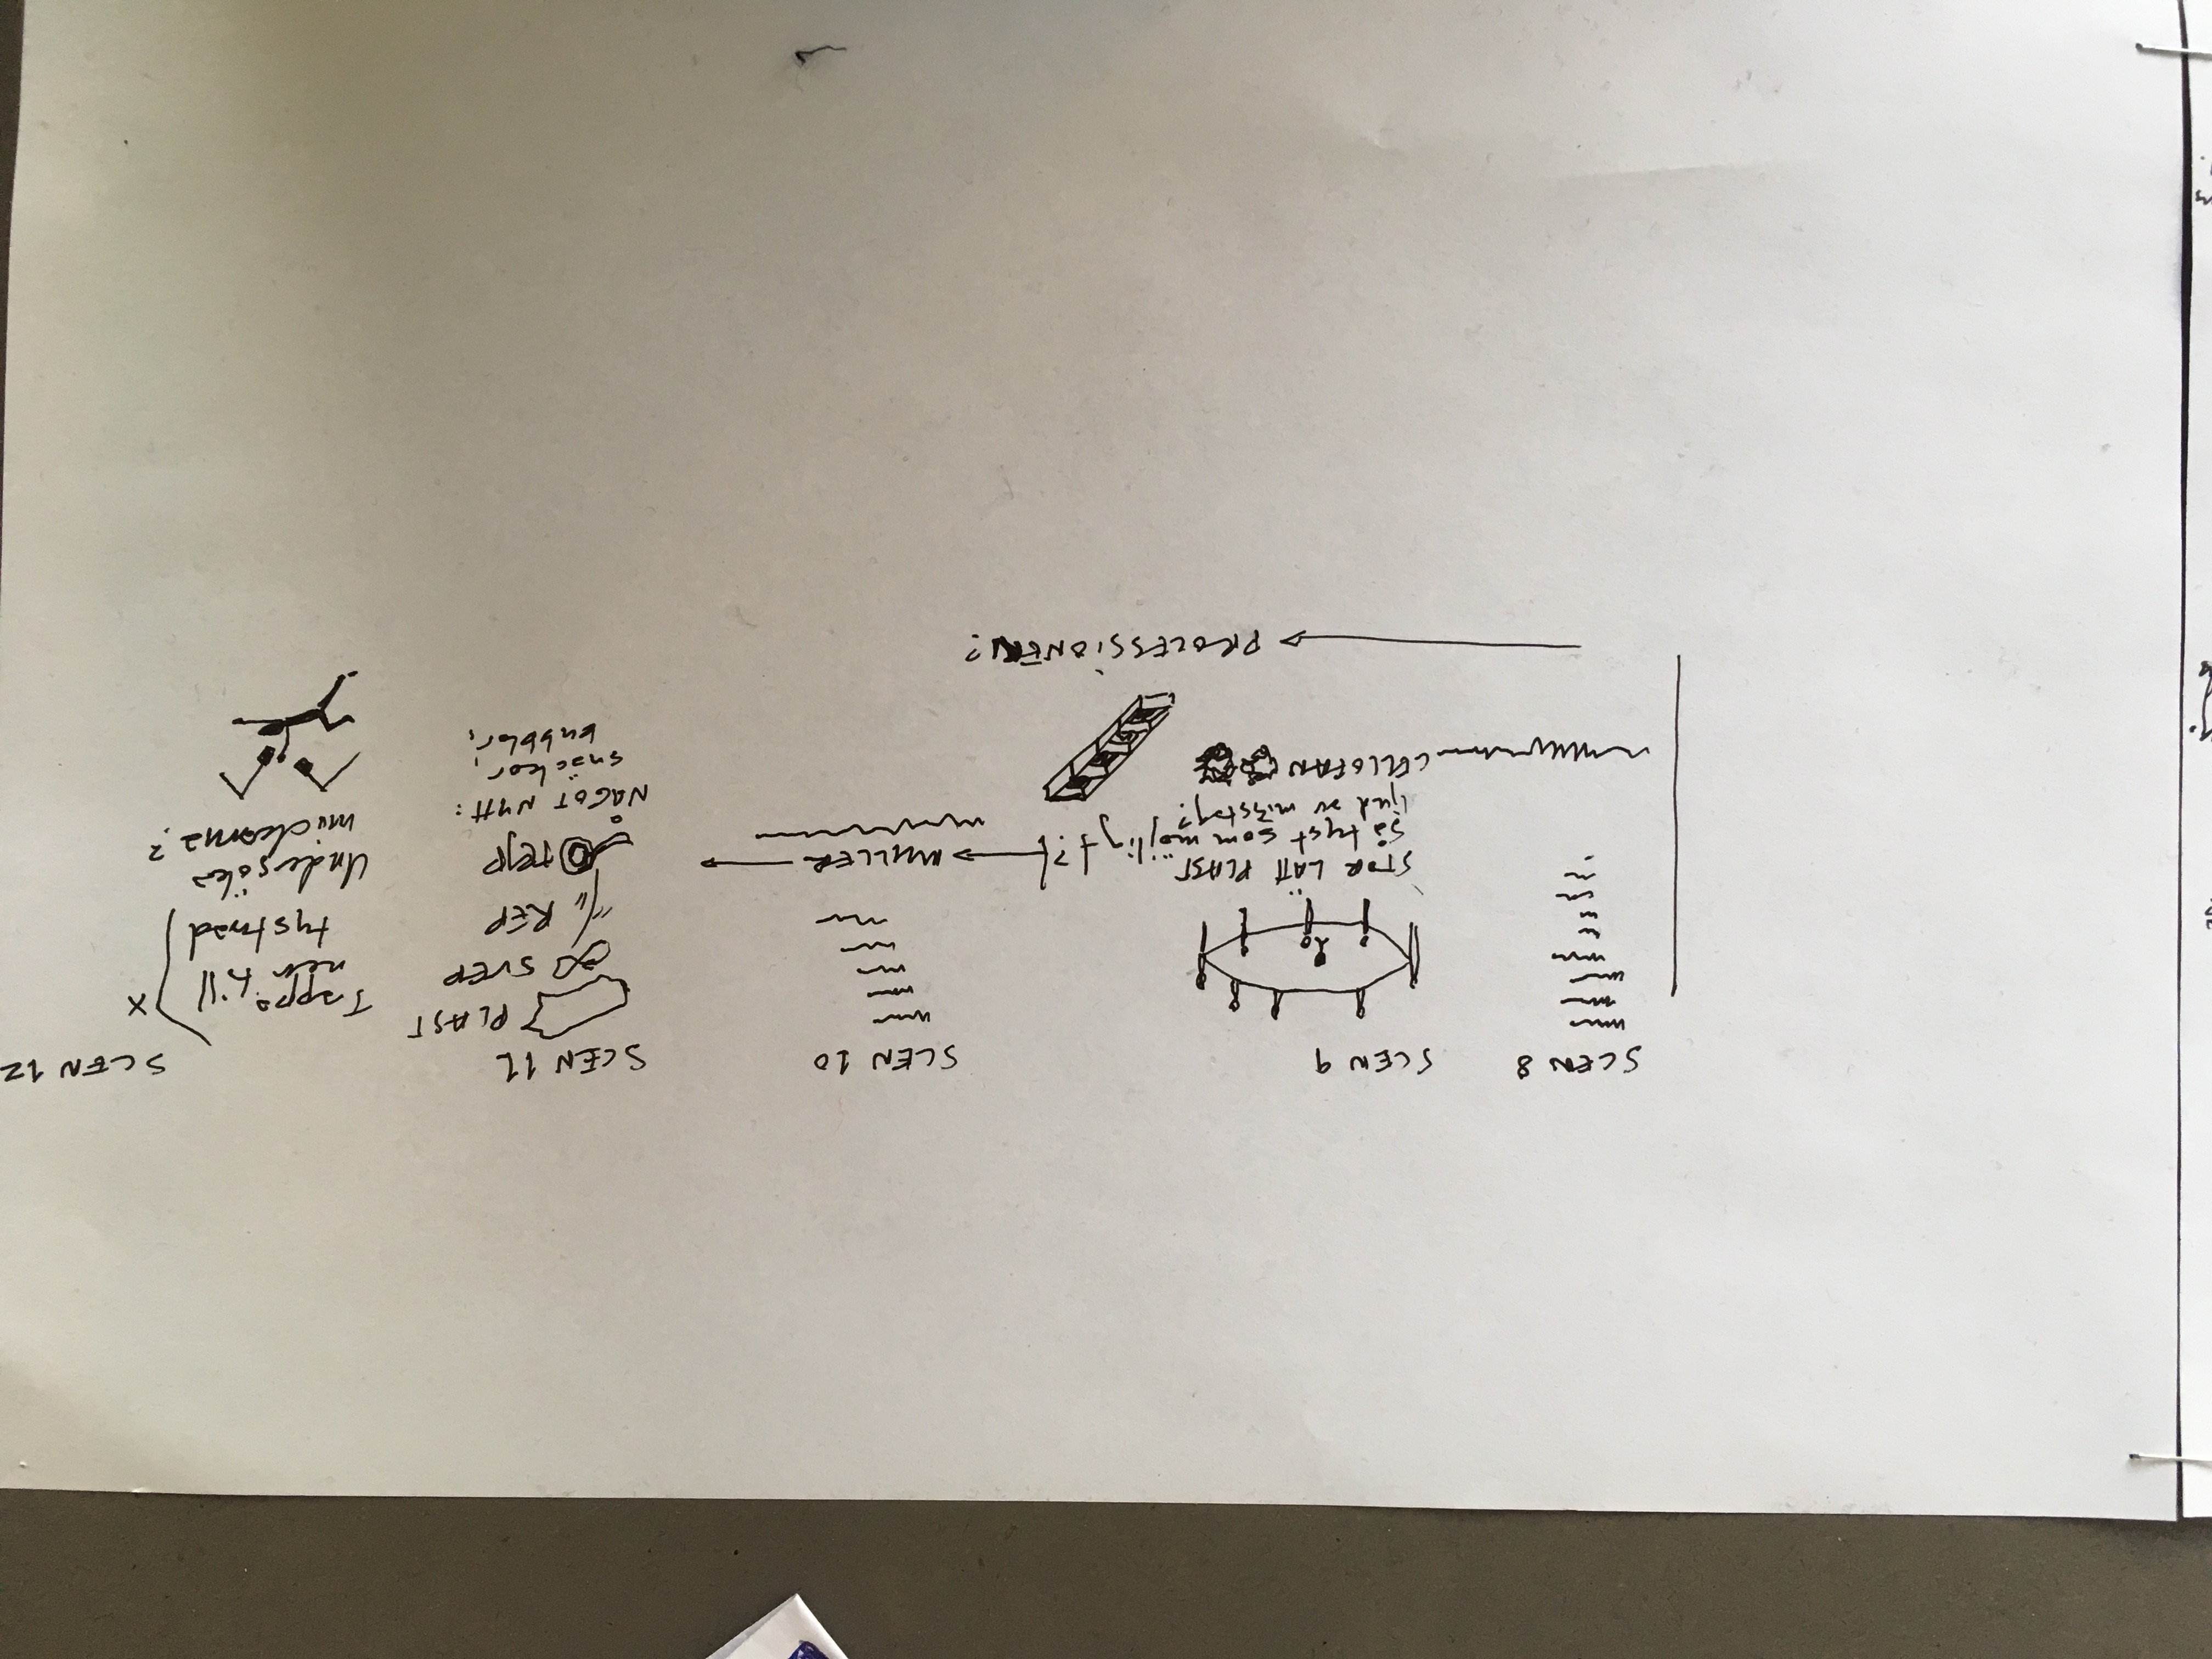 SCEN 8
SCEN 9
STOR LÄTT PLAST
så tyst som möjligt?
ljud av misstag?
CELLOFAN
PROCESSIONEN?
SCEN 10
MULLER
SCEN 11
PLAST
SVEP
REP
TEJP
NÅGOT NYTT:
snäckor,
bubblor,
Tappa
ner till
tystnad
X
Undersöka
mickarna?
SCEN 12